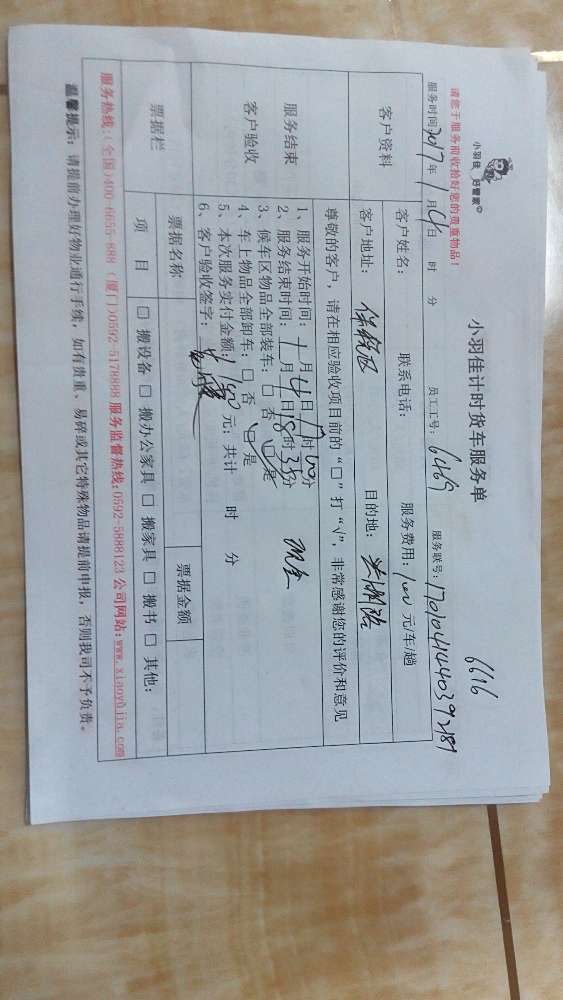 小羽佳 好管家
小羽佳计时货车服务单
6616
请您于服务前收拾好您的贵重物品！
服务时间：2017年1月4日 时 分 员工工号：6469 服务联号：1701041440392187
客户资料
客户姓名： 联系电话： 服务费用：100元/车/趟
客户地址：保税区 目的地：
尊敬的客户，请在相应验收项目前的“□”打“√”，非常感谢您的评价和意见
服务结束
客户验收
1、服务开始时间：1月4日17时00分
2、服务结束时间：1月4日18时35分
现金
3、候车区物品全部装车：□否 □是
4、车上物品全部卸车：□否 □是
5、本次服务实付金额：元；共计 时 分
6、客户验收签字：
票据栏
票据名称 票据金额
项目 □搬设备 □搬办公家具 □搬家具 □搬书 □其他：
服务热线：(全国)400-6655-888 (厦门)0592-5178888 服务监督热线：0592-5888123 公司网站：www.xiaoyujia.com
温馨提示：请提前办理好物业通行手续，如有贵重、易碎或其它特殊物品请提前申报，否则我司不予负责。